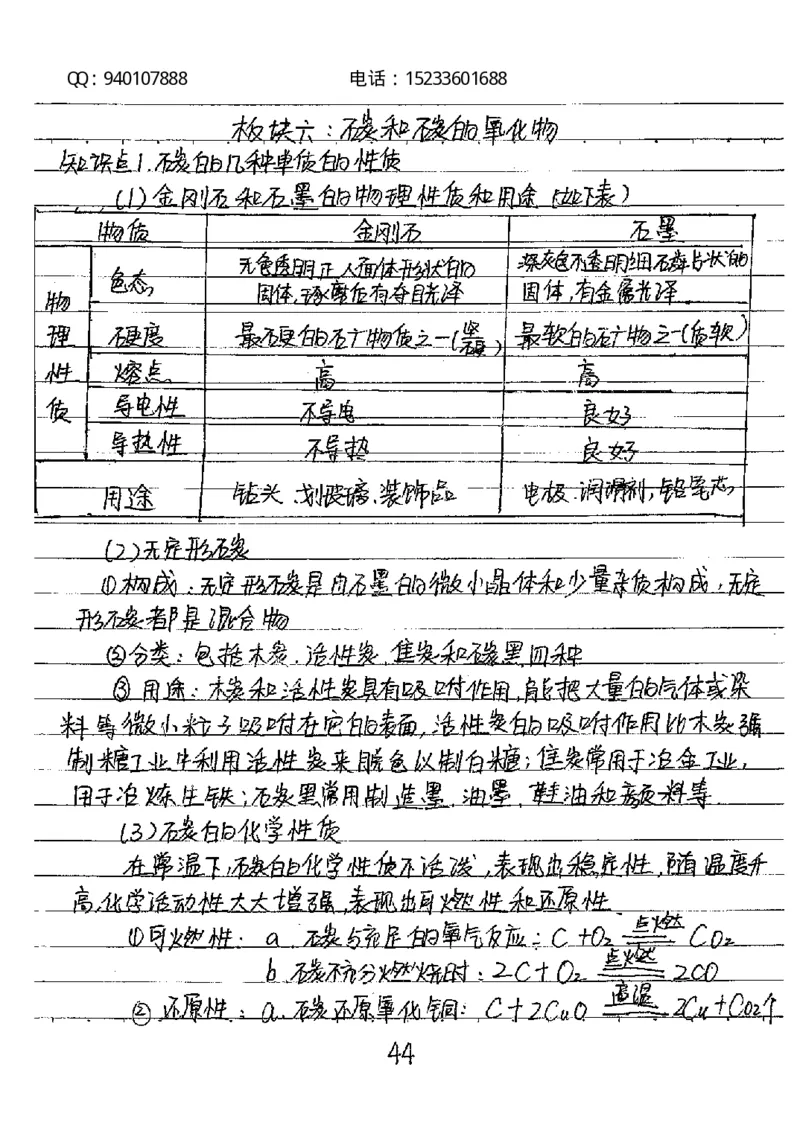 QQ：940107888 电话：15233601688
板块六：碳和碳的氧化物
知识点1.碳的几种单质的性质
(1)金刚石和石墨的物理性质和用途(如下表)
物质 金刚石 石墨
物理性质
色态 无色透明正八面体形状的固体,琢磨后有夺目光泽 深灰色不透明细石鳞片状的固体,有金属光泽
硬度 最硬的矿物质之一(坚硬) 最软的矿物之一(质软)
熔点 高 高
导电性 不导电 良好
导热性 不导热 良好
用途 钻头、划玻璃、装饰品 电极、润滑剂,铅笔芯
(2)无定形碳
①构成：无定形碳是由石墨的微小晶体和少量杂质构成,无定
形碳都是混合物
②分类：包括木炭、活性炭、焦炭和碳黑四种
③用途：木炭和活性炭具有吸附作用,能把大量的气体或染
料等微小粒子吸附在它的表面,活性炭的吸附作用比木炭强
制糖工业中利用活性炭来脱色以制白糖；焦炭常用于冶金工业,
用于冶炼生铁；石炭黑常用制造墨、油墨、鞋油和颜料等
(3)碳的化学性质
在常温下,碳的化学性质不活泼,表现出稳定性,随温度升
高,化学活动性大大增强,表现出可燃性和还原性
①可燃性：a.碳与充足的氧气反应：C+O₂ 点燃 CO₂
b.碳不充分燃烧时：2C+O₂ 点燃 2CO
②还原性：a.碳还原氧化铜：C+2CuO 高温 2Cu+CO₂↑
44